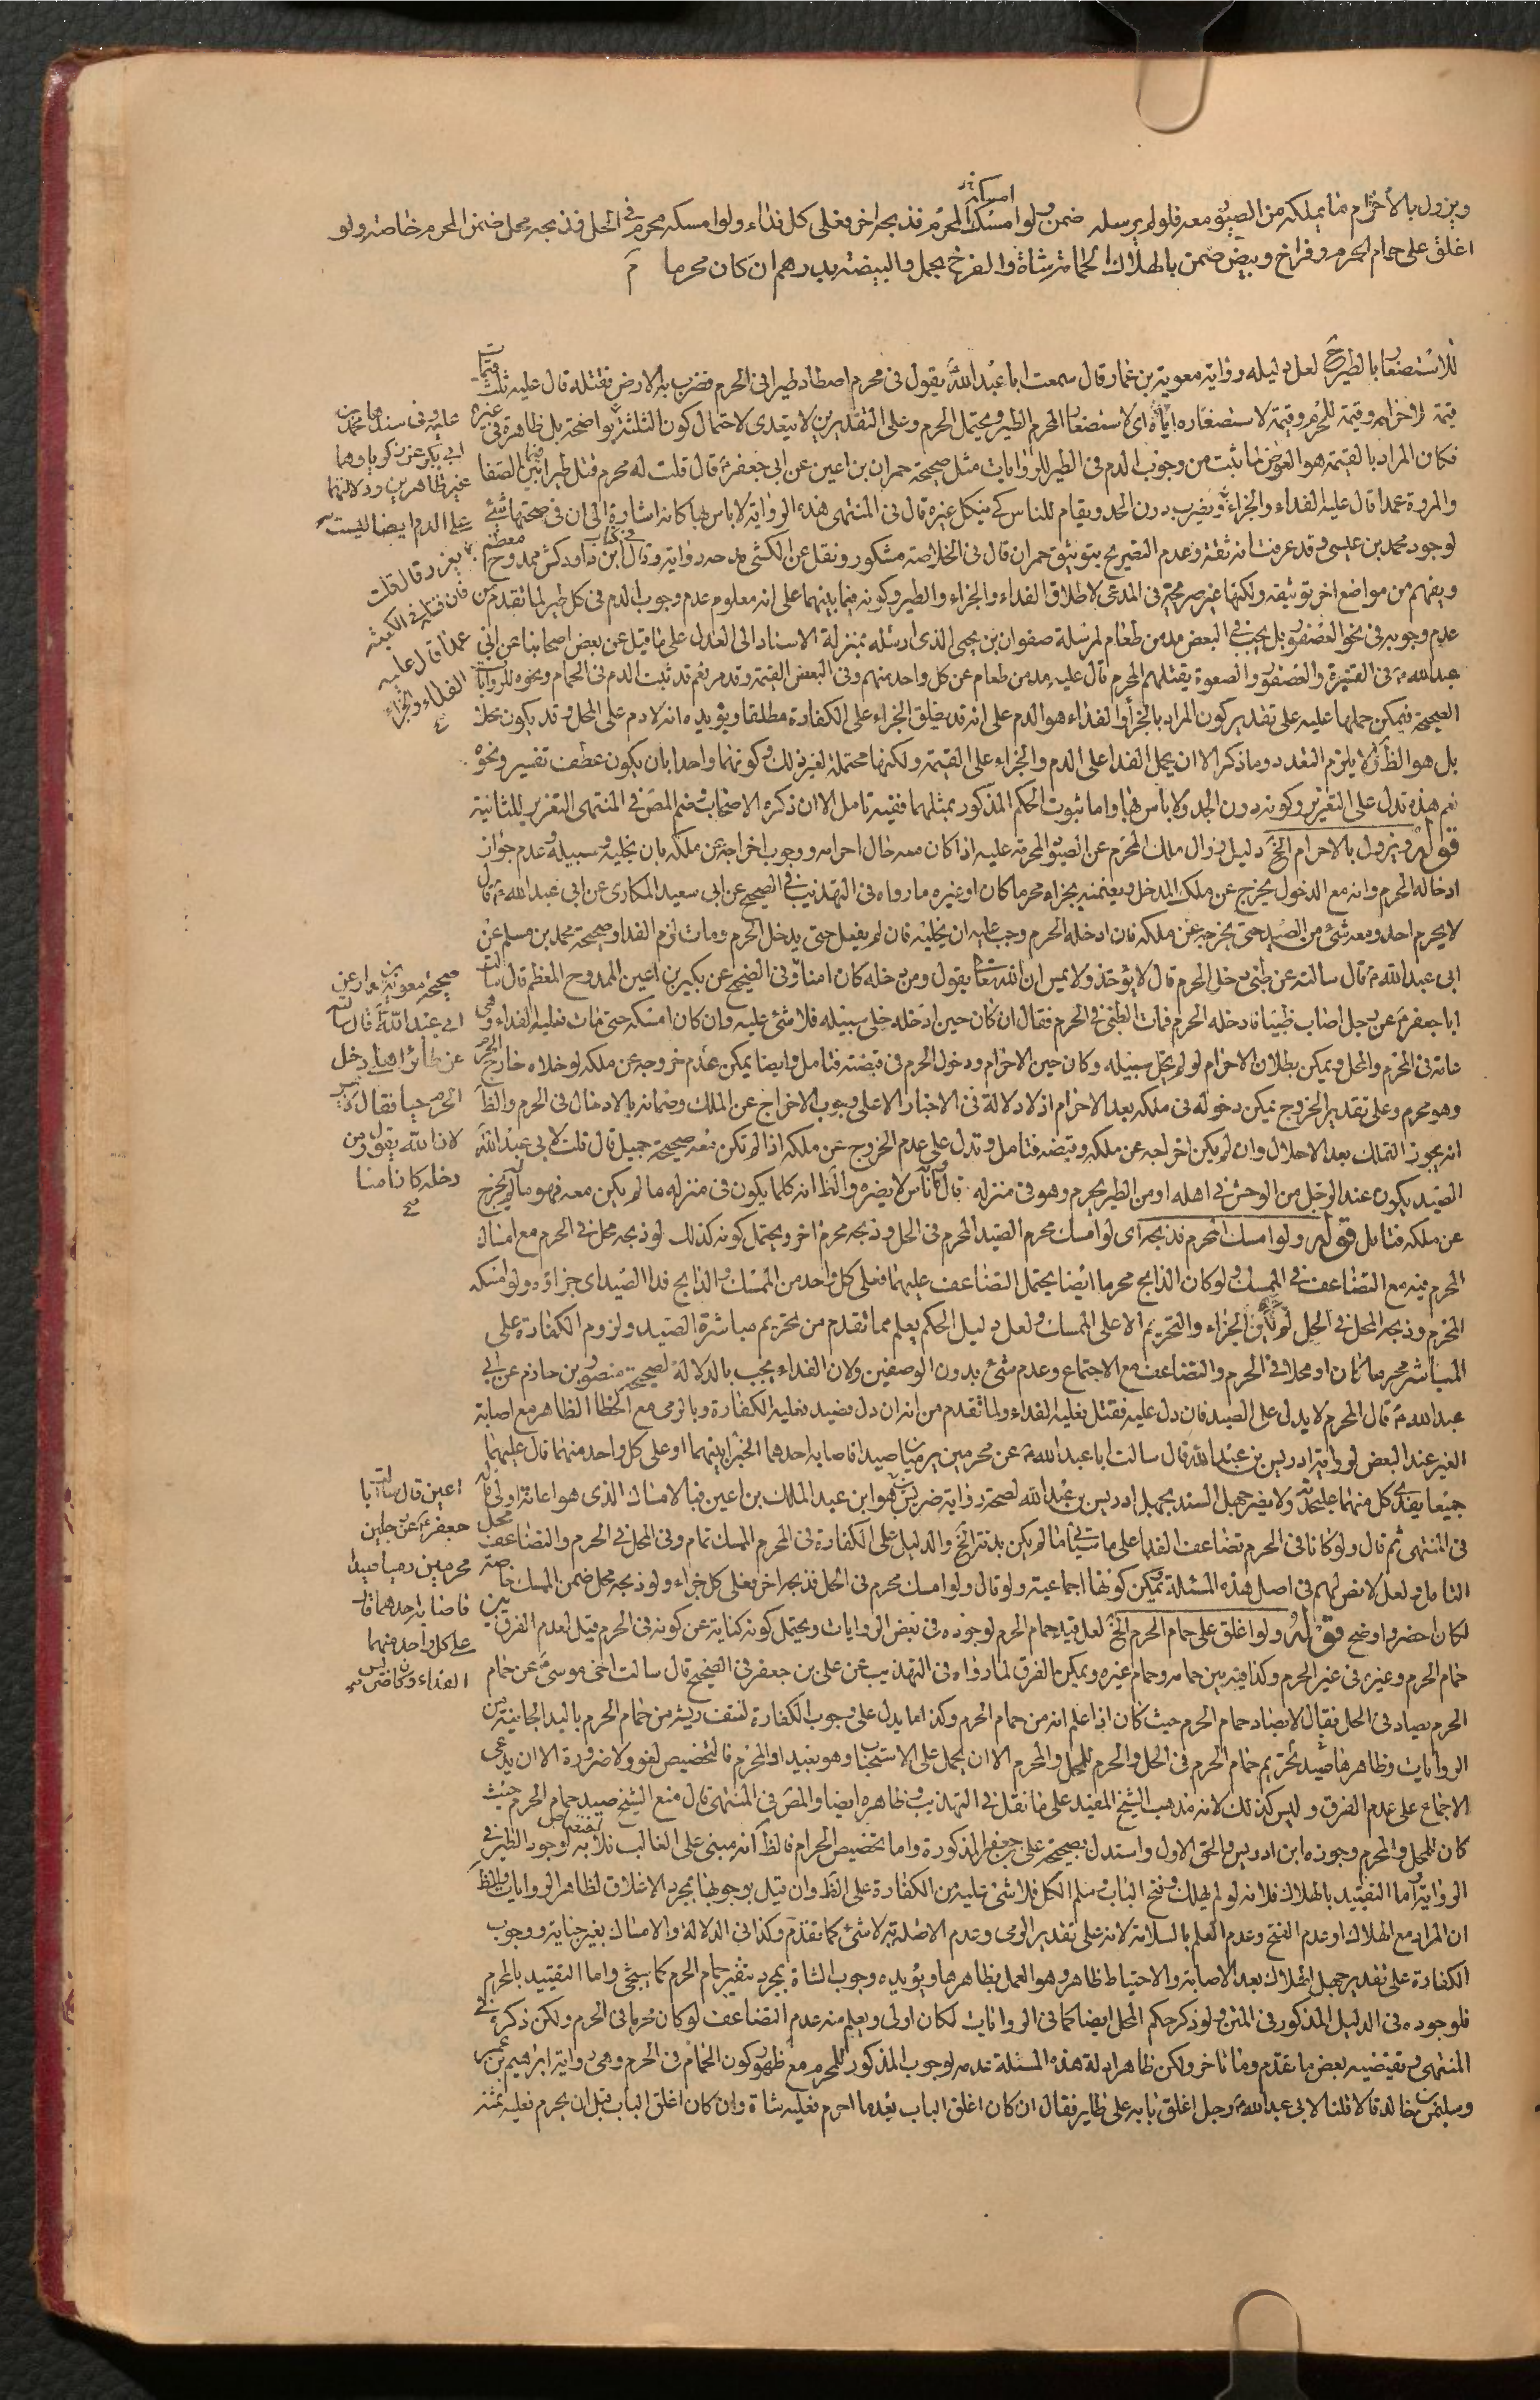 ويزول بالاحرام ما يملكه من الصيود معه فلو لم يرسله ضمن ولو امسك المحرم فذبحه اخر فعلى كل فداء ولو امسكه محرم في الحل فذبحه محل ضمن المحرم خاصة ولو
اغلق على حمام الحرم وفراخ وبيض ضمن بالهلاك الحمامة بشاة والفرخ بحمل والبيضة بدرهم ان كان محرما
للاستصغار بالطير الخ لعل دليله رواية معوية بن عمار قال سمعت ابا عبدالله يقول في محرم اصطاد طيرا في الحرم فضرب به الارض فقتله قال عليه ثلث قيمات
قيمة لاحرامه وقيمة للحرم وقيمة لاستصغاره اياه اى لاستصغار المحرم الطير ويحتمل الحرم وعلى التقديرين لا يتعدى لاحتمال كون الثلثة واضحة بل ظاهرة في غيره
فكان المراد بالقيمة هو العوض لما ثبت من وجوب الدم في الطير للروايات مثل صحيحة حمران بن اعين عن ابى جعفر قال قلت له محرم قتل طيرا فيما بين الصفا
والمروة عمدا قال عليه الفداء والجزاء ويضرب دون الحد ويقام للناس كى ينكل غيره قال في المنتهى هذه الرواية لا باس بها كانه اشارة الى ان في صحتها شئ
لوجود محمد بن عيسى وقد عرفت انه ثقة وعدم التصريح بتوثيق حمران قال في الخلاصة مشكور ونقل عن الكشى مدحه رواية وقال ابن داود كش ممدوح معظم
ويفهم من مواضع اخر توثيقه ولكنها غير صريحة في المدعى لاطلاق الفداء والجزاء والطير وكونه فيما بينهما على انه معلوم عدم وجوب الدم في كل طير لما تقدم من
عدم وجوبه في نحو العصفور بل يجب في البعض مد من طعام لمرسلة صفوان بن يحيى الذى ارسله بمنزلة الاسناد الى العدل على ما قيل عن بعض اصحابنا عن ابى
عبدالله في القبرة والعصفور والصعوة يقتلهم المحرم قال عليه مد من طعام عن كل واحد منهم وفي البعض القيمة وقد مر نعم قد ثبت الدم في الحمام ونحوه للروايات
الصحيحة فيمكن حملها عليه على تقدير كون المراد بالجزاء والفداء هو الدم على انه قد يطلق الجزاء على الكفارة مطلقا ويؤيده انه لا دم على المحل وقد يكون محلا
بل هو الظ ولا يلزم التعدد وما ذكر الا ان يحمل الفداء على الدم والجزاء على القيمة ولكنها محتملة لغير ذلك وكونهما واحدا بان يكون عطف تفسير ونحوه
نعم هذه تدل على التعزير وكونه دون الحد ولا باس بها واما ثبوت الحكم المذكور بمثلهما ففيه تامل الا ان ذكره الاصحاب وضم المص في المنتهى التعزير للثانية
قوله ويزول بالاحرام الخ دليل زوال ملك المحرم عن الصيود المحرمة عليه اذا كان معه حال احرامه ووجوب اخراجه عن ملكه بان يخليه وسبيله وعدم جواز
ادخاله الحرم وانه مع الدخول يخرج عن ملك المدخل ويضمنه بجزاء محرما كان او غيره ما رواه في التهذيب في الصحيح عن ابى سعيد المكارى عن ابى عبدالله قال
لا يحرم احد ومعه شئ من الصيد حتى يخرجه عن ملكه فان ادخله الحرم وجب عليه ان يخليه فان لم يفعل حتى يدخل الحرم ومات لزم الفداء وصحيحة محمد بن مسلم عن
ابى عبدالله قال سالته عن ظبى دخل الحرم قال لا يؤخذ ولا يمس ان الله تعا يقول ومن دخله كان امنا وفي الصحيح عن بكير بن اعين الممدوح المعظم قال سالت
ابا جعفر عن رجل اصاب ظبيا فادخله الحرم فمات الظبى في الحرم فقال ان كان حين ادخله خلى سبيله فلا شئ عليه وان كان امسكه حتى مات فعليه الفداء وهى
عامة في المحرم والمحل ويمكن بطلان الاحرام لو لم يخل سبيله وكان حين الاحرام ودخول الحرم في قبضته فتامل وايضا يمكن عدم خروجه عن ملكه لو خلاه خارج الحرم
وهو محرم وعلى تقدير الخروج يمكن دخوله في ملكه بعد الاحرام اذ لا دلالة في الاخبار الا على وجوب الاخراج عن الملك وضمانه بالادخال في الحرم والظ
انه يجوز التملك بعد الاحلال وان لم يكن اخراجه عن ملكه وقبضه فتامل وتدل على عدم الخروج عن ملكه اذا لم تكن معه صحيحة جميل قال قلت لابى عبدالله
الصيد يكون عند الرجل من الوحش في اهله او من الطير يحرم وهو في منزله قال لا باس لا يضره والظ انه كلما يكون في منزله ما لم يكن معه فهو مما لم يخرج
عن ملكه فتامل قوله ولو امسك المحرم فذبحه اى لو امسك محرم الصيد المحرم في الحل وذبحه محرم اخر ويحتمل كونه كذلك لو ذبحه محل في الحرم مع امساك
المحرم فيه مع التضاعف في الممسك ولو كان الذابح محرما ايضا يحتمل التضاعف عليهما فعلى كل واحد من الممسك والذابح فداء الصيد اى جزاؤه ولو امسكه
المحرم وذبحه المحل في الحل لم يكن الجزاء والتحريم الا على الممسك ولعل دليل الحكم يعلم مما تقدم من تحريم مباشرة الصيد ولزوم الكفارة على
المباشر محرما كان او محلا في الحرم والتضاعف مع الاجتماع وعدم شئ بدون الوصفين ولان الفداء يجب بالدلالة لصحيحة منصور بن حازم عن ابى
عبدالله قال المحرم لا يدل على الصيد فان دل عليه فقتل فعليه الفداء ولما تقدم من انه ان دل فصيد فعليه الكفارة وبالرمى مع الخطا الظاهر مع اصابة
الغير عند البعض لرواية ادريس بن عبدالله قال سالت ابا عبدالله عن محرمين يرميان صيدا فاصابه احدهما الجزاء بينهما او على كل واحد منهما قال عليهما
جميعا يفدى كل منهما على حدته ولا يضر جهل السند بجهل ادريس بن عبدالله لصحة رواية ضريس وهو ابن عبد الملك بن اعين فبالامساك الذى هو اعانة اولى قاله
في المنتهى ثم قال ولو كانا في الحرم تضاعف الفداء على ما سياتى ما لم يكن بدنة الخ والدليل على الكفارة في المحرم الممسك تمام وفي المحل في الحرم والتضاعف محل
التامل ولعل لا نص لهم في اصل هذه المسئلة ويمكن كونها اجماعية ولو قال ولو امسك محرم في الحل فذبحه اخر فعلى كل جزاء ولو ذبحه محل ضمن الممسك خاصة
لكان اخصر واوضح قوله ولو اغلق على حمام الحرم الخ لعل قيد حمام الحرم لوجوده في بعض الروايات ويحتمل كونه كناية عن كونه في الحرم قيل لعدم الفرق بين
حمام الحرم وغيره في غير الحرم وكذا فيه بين حمامه وحمام غيره ويمكن الفرق لما رواه في التهذيب عن على بن جعفر في الصحيح قال سالت اخى موسى عن حمام
الحرم يصاد في الحل فقال لا يصاد حمام الحرم حيث كان اذا علم انه من حمام الحرم وكذا ما يدل على وجوب الكفارة لنتف ريشه من حمام الحرم باليد الجانية من
الروايات وظاهرها تحريم صيد حمام الحرم في الحل والحرم للمحل والمحرم الا ان يحمل على الاستحباب وهو بعيد او المحرم فالتخصيص لغو ولا ضرورة الا ان يدعى
الاجماع على عدم الفرق وليس كذلك لانه مذهب الشيخ المفيد على ما نقل في التهذيب وظاهره ايضا والمص في المنتهى قال منع الشيخ صيد حمام الحرم حيث
كان للمحل والمحرم وجوزه ابن ادريس والحق الاول واستدل بصحيحة على بن جعفر المذكورة واما تخصيص الحرام فالظ انه مبنى على الغالب لوجود الطير في
الرواية اما التقييد بالهلاك فلانه لو لم يهلك وفتح الباب وسلم الكل فلا شئ عليه من الكفارة على الظ وان قيل بوجوبها بمجرد الاغلاق لظاهر الروايات والظ
ان المراد مع الهلاك او عدم الفتح وعدم العلم بالسلامة لانه على تقدير الرمى وعدم الاصابة لا شئ كما تقدم وكذا في الدلالة والامساك بغير جناية ووجوب
الكفارة على تقدير جهل الهلاك بعد الاصابة والاحتياط ظاهر وهو العمل بظاهرها ويؤيده وجوب الشاة بمجرد تنفير حمام الحرم كما سيجئ واما التقييد بالمحرم
فلوجوده في الدليل المذكور في المتن ولو ذكر حكم المحل ايضا كما في الروايات لكان اولى ويعلم منه عدم التضاعف لو كان محرما في الحرم ولكن ذكره في
المنتهى ويقتضيه بعض ما تقدم وما تاخر ولكن ظاهر ادلة هذه المسئلة عدمه لوجوب المذكور للمحرم مع ظهور كون الحمام في الحرم وهى رواية ابراهيم بن عمر
وسليمن بن خالد قالا قلنا لابى عبدالله رجل اغلق بابه على طاير فقال ان كان اغلق الباب بعد ما احرم فعليه شاة وان كان اغلق الباب قبل ان يحرم فعليه ثمنه
عليه وفي سندها محمد بن
ابى بكر عن زكريا وهما
غير ظاهرين ودلالتهما
على الدم ايضا ليست
قال قلت
فان قتله في الكعبة
عمدا قال عليه
الفداء والجزاء
صحيحة معوية بن عمار عن
ابى عبدالله قال سالته
عن طائر اهلى دخل
الحرم حيا فقال لا يمس
لان الله يقول ومن
دخله كان امنا
اعين قال سالت ابا
جعفر عن رجلين
محرمين رميا صيدا
فاصابه احدهما قال
على كل واحد منهما
الفداء